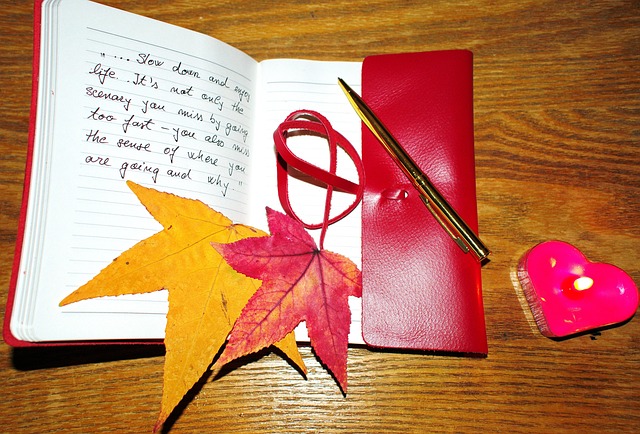 "... Slow down and enjoy
life... It's not only the
scenary you miss by going
too fast - you also miss
the sense of where you
are going and why "